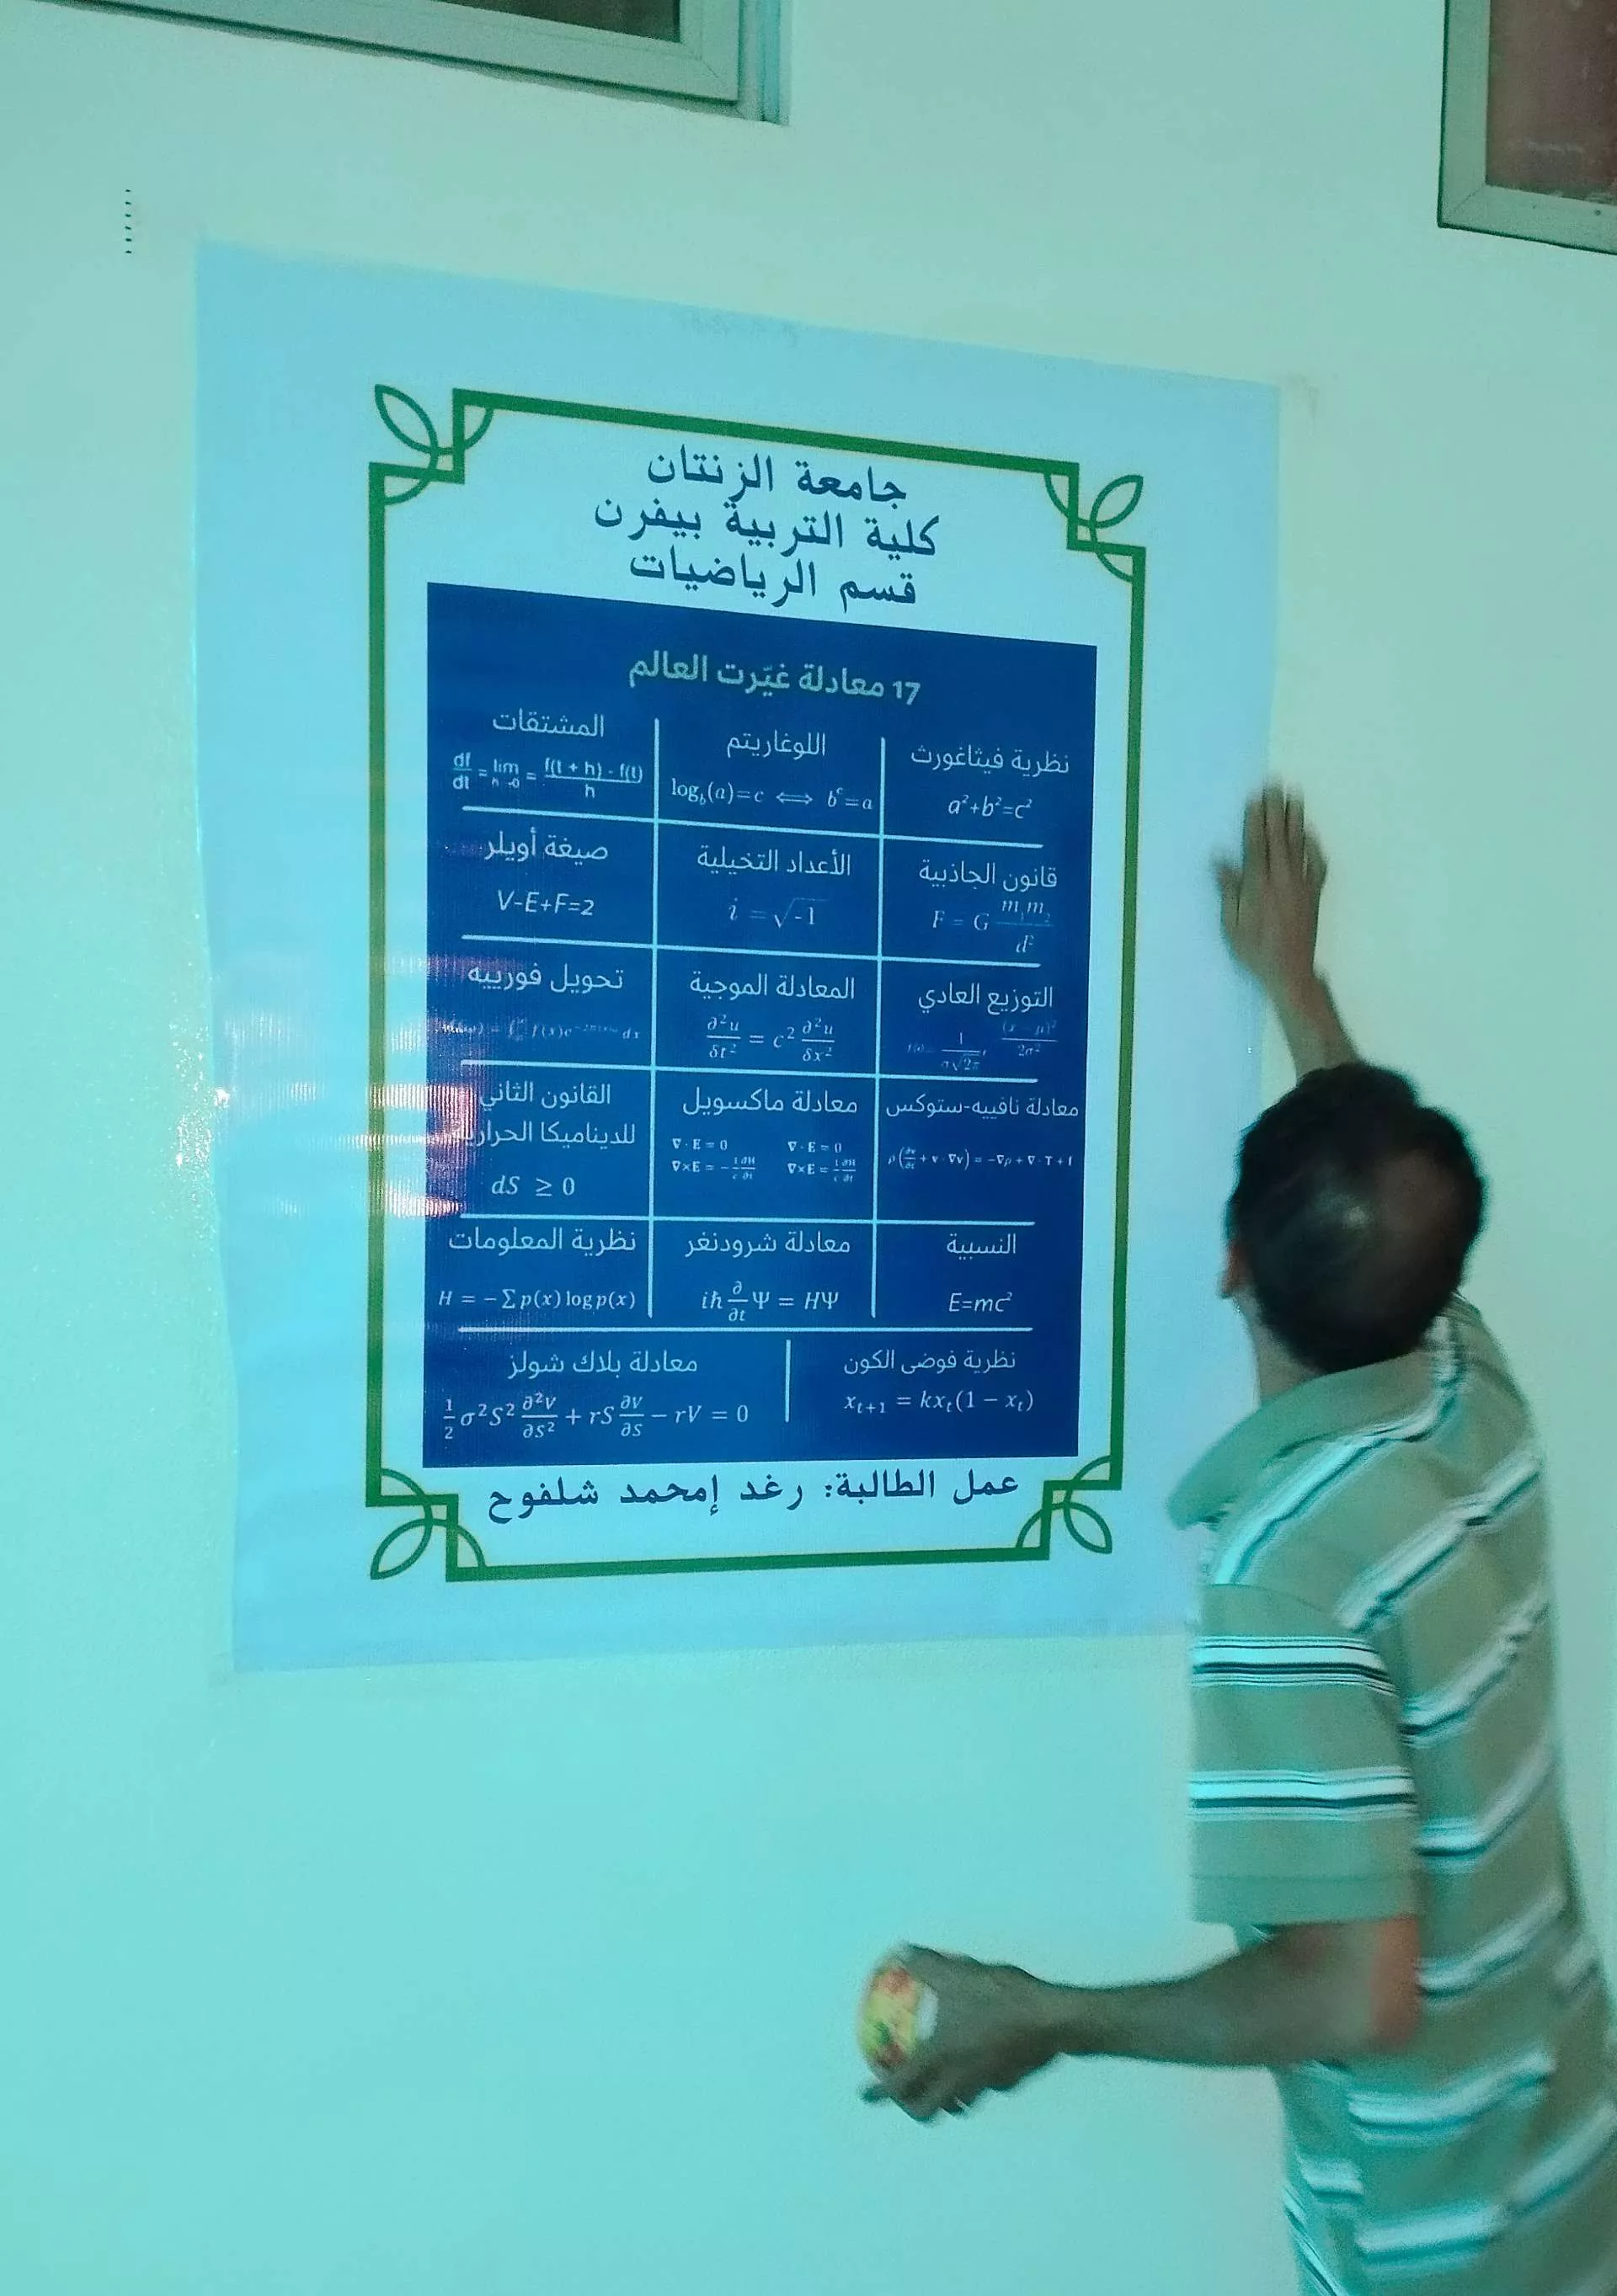 جامعة الزنتان
كلية التربية بيفرن
قسم الرياضيات
17 معادلة غيّرت العالم
نظرية فيثاغورث
a²+b²=c²
اللوغاريتم
log_b(a)=c ⟺ b^c=a
المشتقات
df/dt = lim h→0 = f(t + h) - f(t) / h
قانون الجاذبية
F = G m₁m₂ / d²
الأعداد التخيلية
i = √-1
صيغة أويلر
V-E+F=2
التوزيع العادي
1 / σ√2π (x - μ)² / 2σ²
المعادلة الموجية
∂²u/δt² = c² ∂²u/δx²
تحويل فورييه
معادلة نافييه-ستوكس
ρ(∂v/∂t + v · ∇v) = -∇p + ∇ · T + f
معادلة ماكسويل
∇ · E = 0 ∇ · E = 0
∇×E = -1/c ∂H/∂t ∇×E = 1/c ∂H/∂t
القانون الثاني
للديناميكا الحرارية
dS ≥ 0
النسبية
E=mc²
معادلة شرودنغر
iħ ∂/∂t Ψ = HΨ
نظرية المعلومات
H = - Σ p(x) log p(x)
نظرية فوضى الكون
x_{t+1} = kx_t(1 - x_t)
معادلة بلاك شولز
½ σ²S² ∂²V/∂S² + rS ∂V/∂S - rV = 0
عمل الطالبة: رغد إمحمد شلفوح